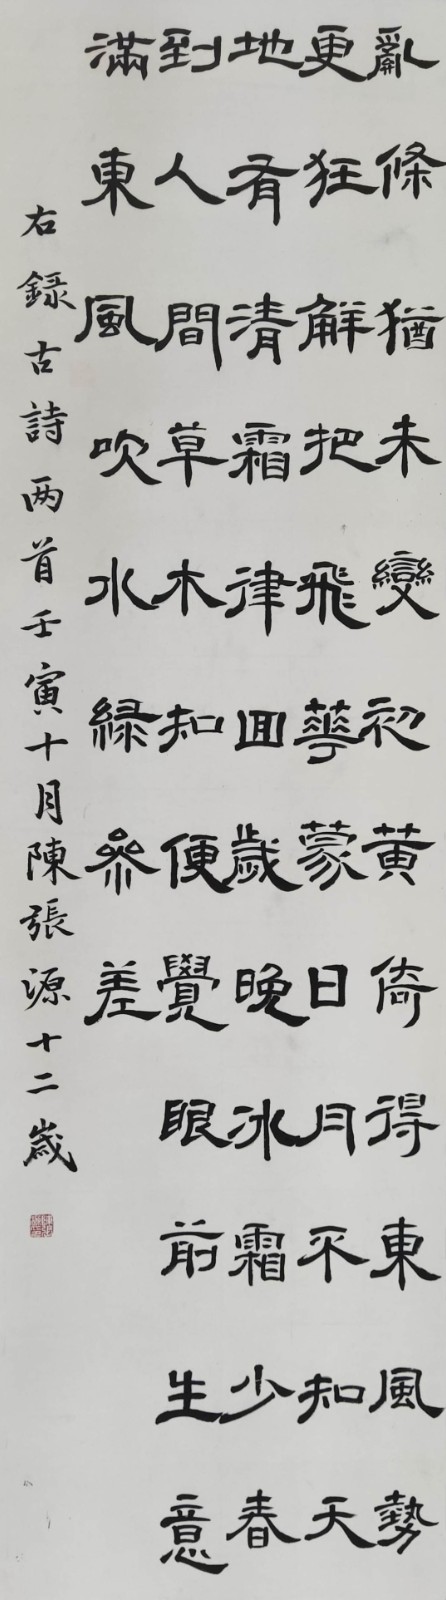 亂條猶未變初黄倚得東風勢
更狂解把飛華蒙日月不知天
地有清霜律囬歲晚冰霜少春
到人間草木知便覺眼前生意
滿東風吹水緑參差
右録古詩两首壬寅十月陳張源十二歲